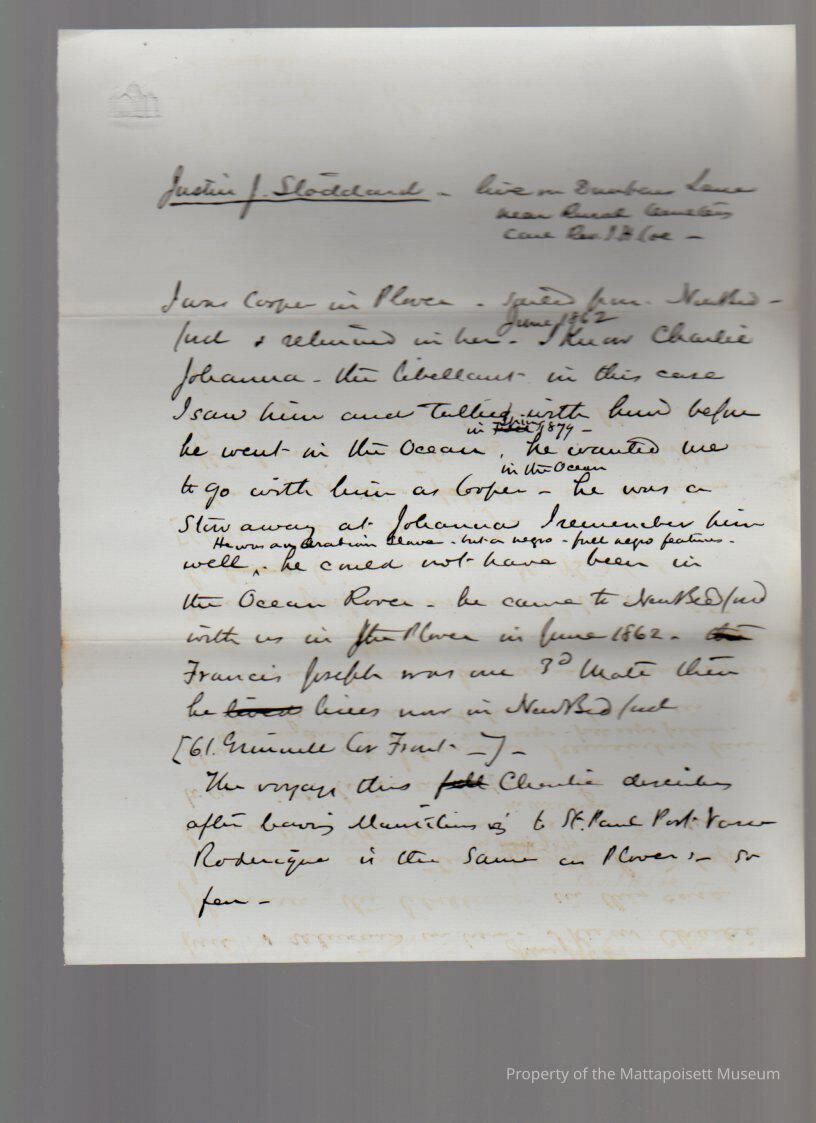 Justin J. Stoddard - live on Dunbars Lane
near Rural Cemetery
care Rev. J H Coe -
I was Cooper in Plover - sailed from New Bed-
June 1862
ford & returned in her - I know Charlie
Johanna - the libellant in this case
I saw him and talked with him before
in 1879 -
he went in the Ocean, he wanted me
in the Ocean
to go with him as Cooper - he was a
Stowaway at Johanna I remember him
He was an slave - but a negro - full negro features -
well, he could not have been in
the Ocean Rover - he came to New Bedford
with us in the Plover in June 1862 - the
Francis Joseph was our 3d Mate then
he lived lives now in New Bedford
[61 Grinnell Cor Front -] -
The voyage this fell Charlie describes
after leaving Mauritius to St. Paul Port
Rodrique is the same as Plovers - so
far -
Property of the Mattapoisett Museum